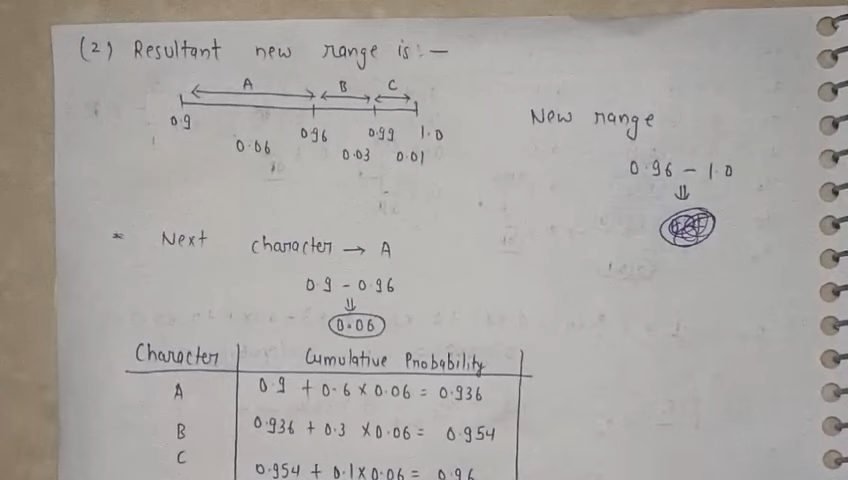 (2) Resultant new range is :-
A B C
0.9 0.96 0.99 1.0
0.06 0.03 0.01
New range
0.96 - 1.0
⇓
* Next character → A
0.9 - 0.96
⇓
0.06
Character Cumulative Probability
A 0.9 + 0.6 × 0.06 = 0.936
B 0.936 + 0.3 × 0.06 = 0.954
C 0.954 + 0.1 × 0.06 = 0.96